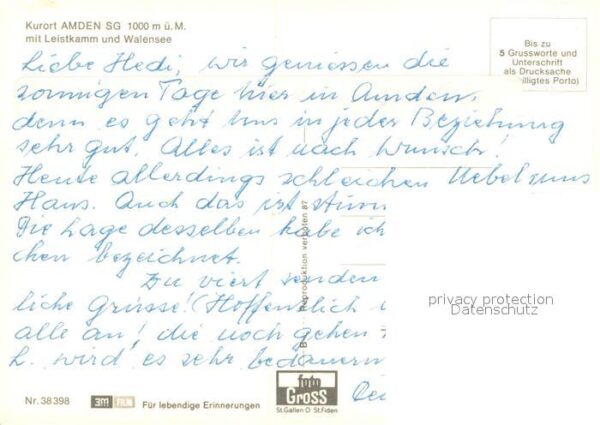 Kurort AMDEN SG 1000 m ü. M.
mit Leistkamm und Walensee
Bis zu
5 Grussworte und
Unterschrift
als Drucksache
illigtes Porto)
Liebe Hedi, wir geniessen die
sonnigen Tage hier in Amden,
denn es geht uns in jeder Beziehung
sehr gut. Alles ist nach Wunsch!
Heute allerdings schleichen Nebel ums
Haus. Auch das ist stim
Die Lage desselben habe ich
chen bezeichnet.
Zu viert senden
liche Grüsse! (Hoffentlich
alle an! die noch gehen
L. wird es sehr bedauern
Reproduktion verboten 87
privacy protection
Datenschutz
Nr. 38398
3M FILM
Für lebendige Erinnerungen
foto
GROSS
St. Gallen O St. Fiden